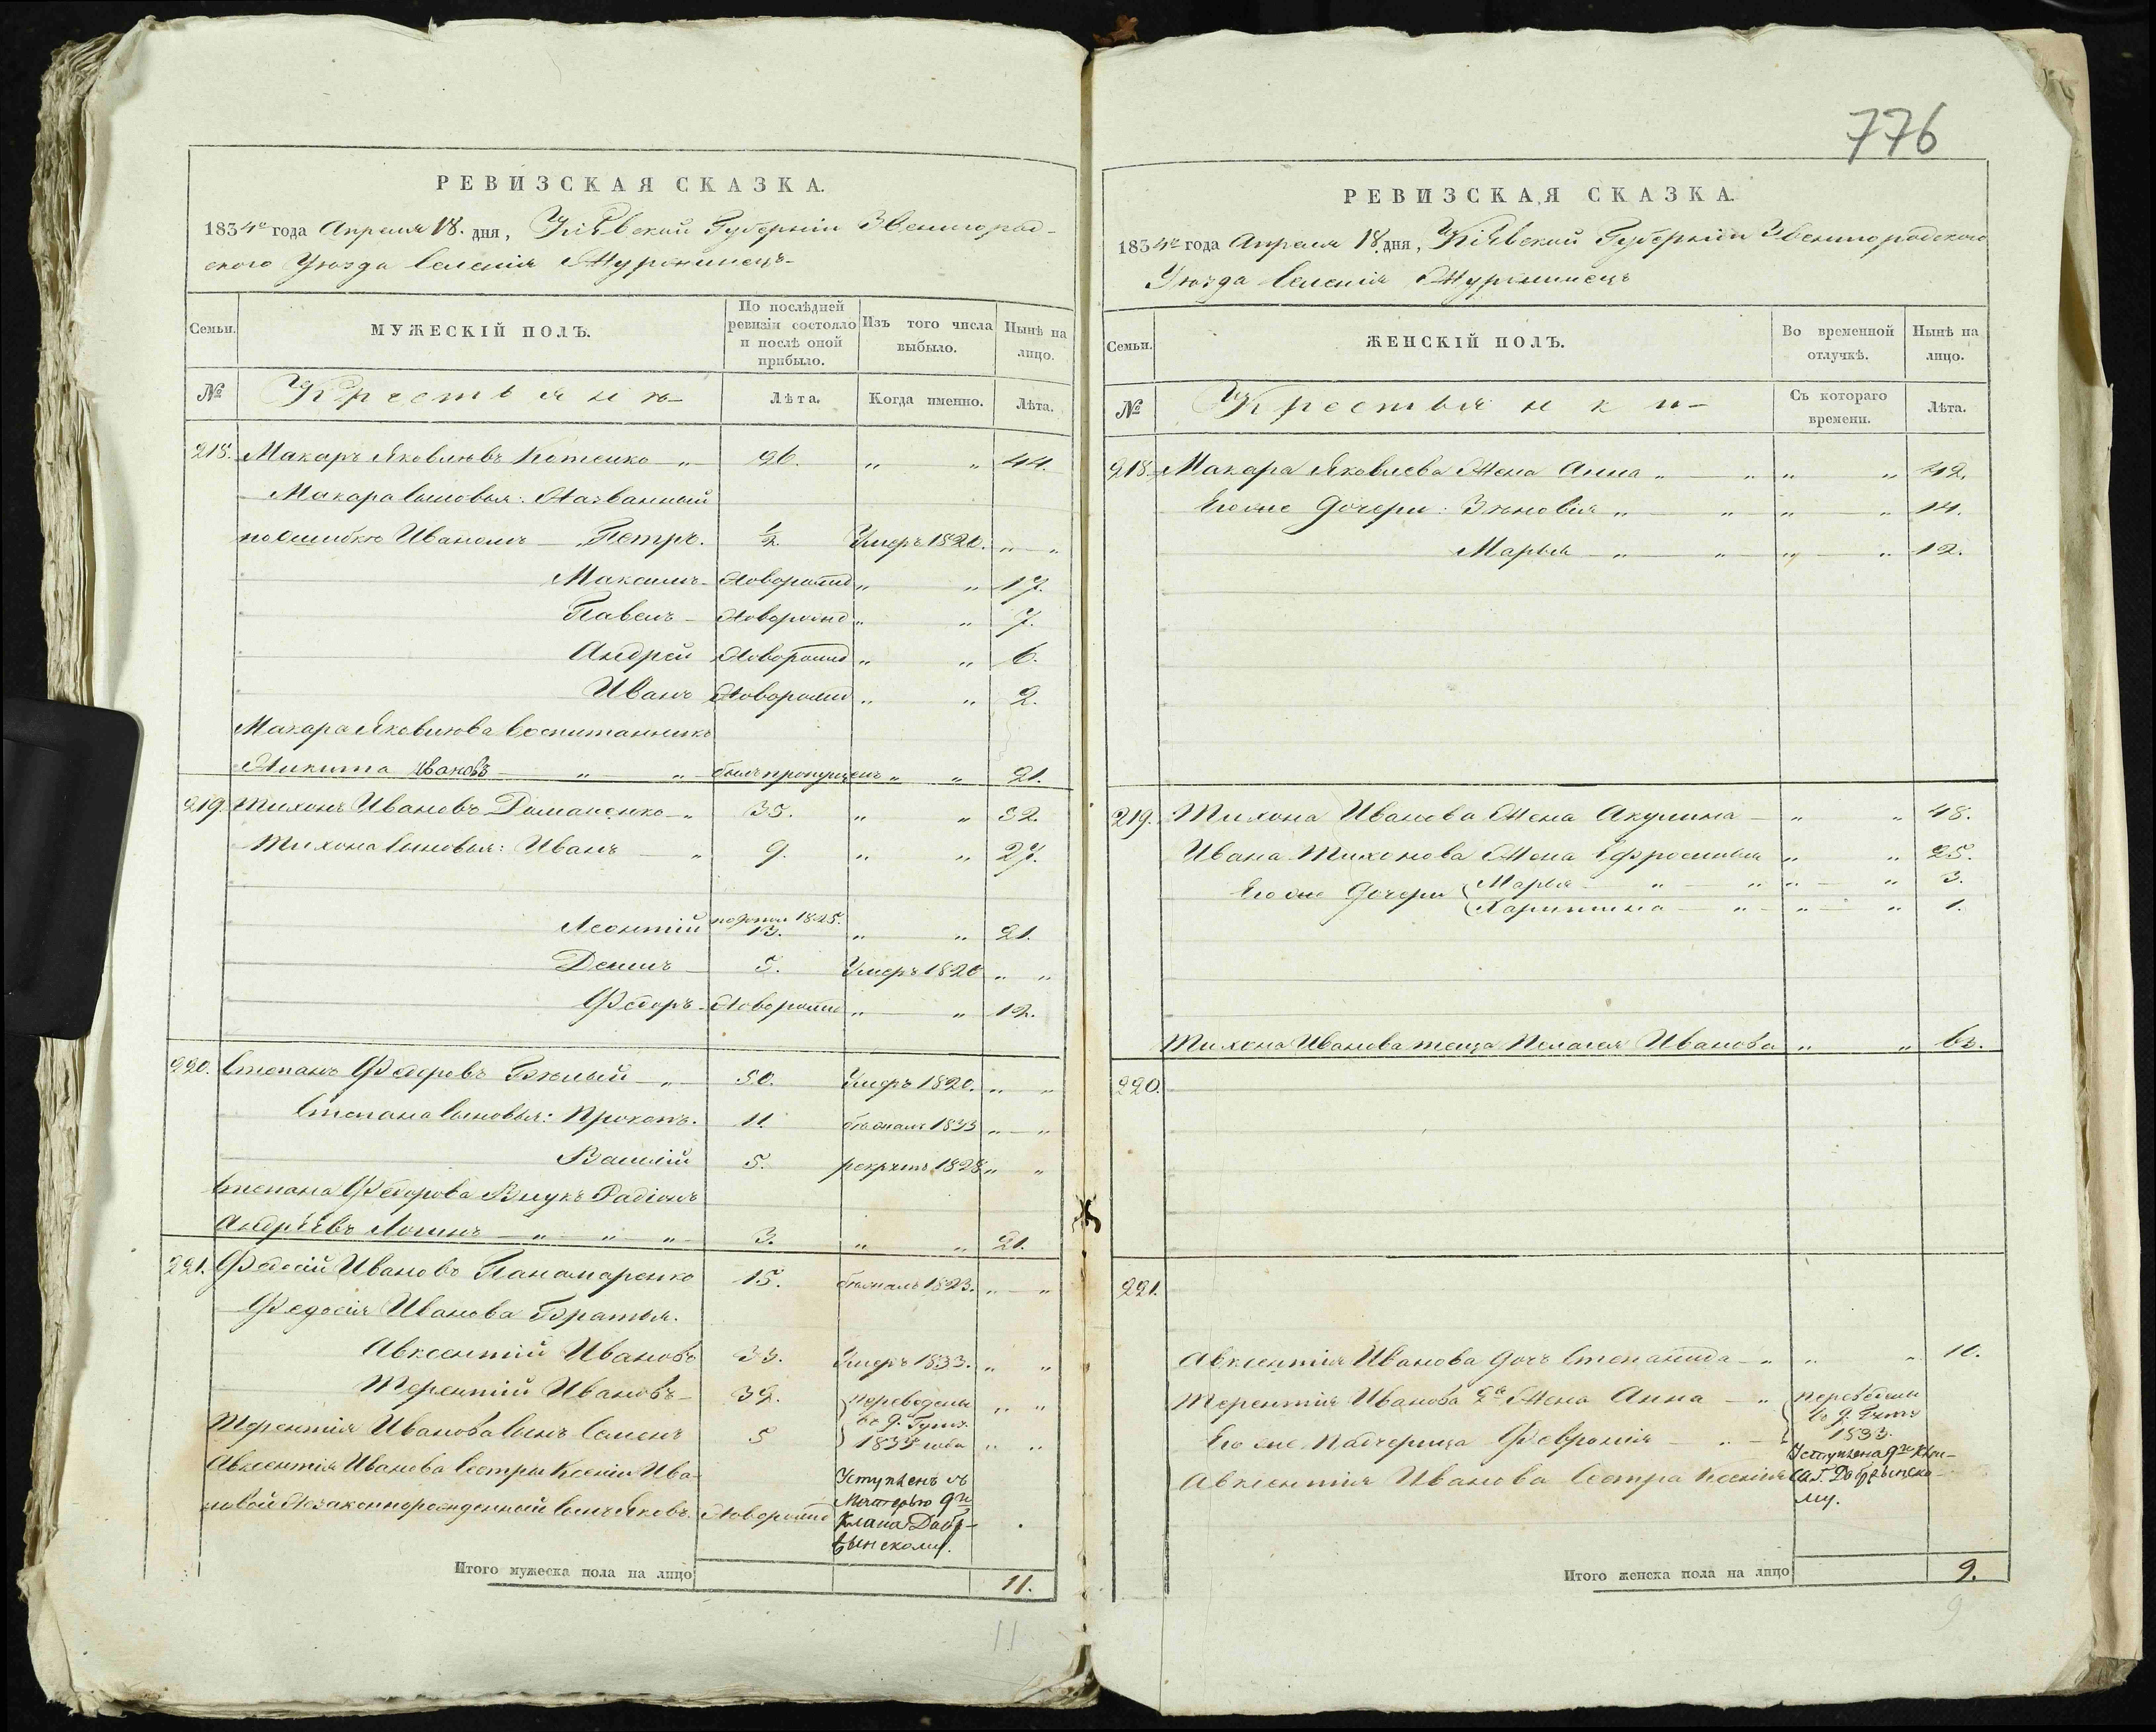 776
РЕВИЗСКАЯ СКАЗКА.
1834го года Апреля 18. дня, Кіевской Губерніи Звенигород-
ского Уезда Селенія Журжинецъ
Семьи.
МУЖЕСКІЙ ПОЛЪ.
По послѣдней ревизіи состояло и послѣ оной прибыло.
Изъ того числа выбыло.
Нынѣ на лицо.
№
Крестьяне
Лѣта.
Когда именно.
Лѣта.
218. Макаръ Яковлевъ Котенко 26. " " 44.
Макара Сыновья: Названный
по ошибкѣ Иваномъ — Петръ. ½ Умеръ 1820. " "
Максимъ Новорожд " " 17.
Павелъ Новорожд " " 7.
Андрей Новорожд " " 6.
Иванъ Новорожд " " 2.
Макара Яковлева воспитанникъ
Никита Ивановъ " " былъ пропущенъ " " 21.
219. Тихонъ Ивановъ Доманенко " 35. " " 52.
Тихона Сыновья: Иванъ " 9. " " 27.
Леонтій 1825. 13. " " 21.
Демидъ 5. Умеръ 1820 " "
Федоръ Новорожд " " 12.
220. Степанъ Федоровъ Бѣлый " 50. Умеръ 1820. " "
Степана Сыновья: Прокопъ. 11. бѣжалъ 1833 " "
Василій 5. рекрутъ 1828 " "
Степана Федорова Внукъ Радіонъ
Андрѣевъ " " " 3. " " 21.
221. Федосій Ивановъ Панамаренко 15. бѣжалъ 1823. " "
Федосія Иванова Братья.
Авксентій Ивановъ 33. Умеръ 1833. " "
Терентій Ивановъ 32. переведены " "
во д. Гуту
Терентія Иванова Сынъ Семенъ 5 1833 года " "
Авксентія Иванова Сестры Ксеніи Ива-
новой Незаконнорожденный Сынъ Яковъ. Новорожд
Уступленъ съ
Матерью
Итого мужеска пола на лицо 11.
11
РЕВИЗСКАЯ СКАЗКА.
1834го года Апреля 18. дня, Кіевской Губерніи Звенигородского
Уезда Селенія Журжинецъ
Семьи.
ЖЕНСКІЙ ПОЛЪ.
Во временной отлучкѣ.
Нынѣ на лицо.
№
Крестьянки
Съ котораго времени.
Лѣта.
218. Макара Яковлева Жена Анна " " " " 42.
Его же Дочери: Зѣновія " " " " 14.
Марья " " " " 12.
219. Тихона Иванова Жена Акулина " " 48.
Ивана Тихонова Жена Ефросинья " " 25.
Его же Дочери Марья " " " " 3.
Харитина " " " 1.
Тихона Иванова теща Пелагея Иванова " "
220.
221.
Авксентія Иванова дочь Степанида " " "
Терентія Иванова 2я Жена Анна " переведены
во д. Гуту
Его же Падчерица Февронія 1833.
Авксентія Иванова Сестра Ксенія
Итого женска пола на лицо 9.
9